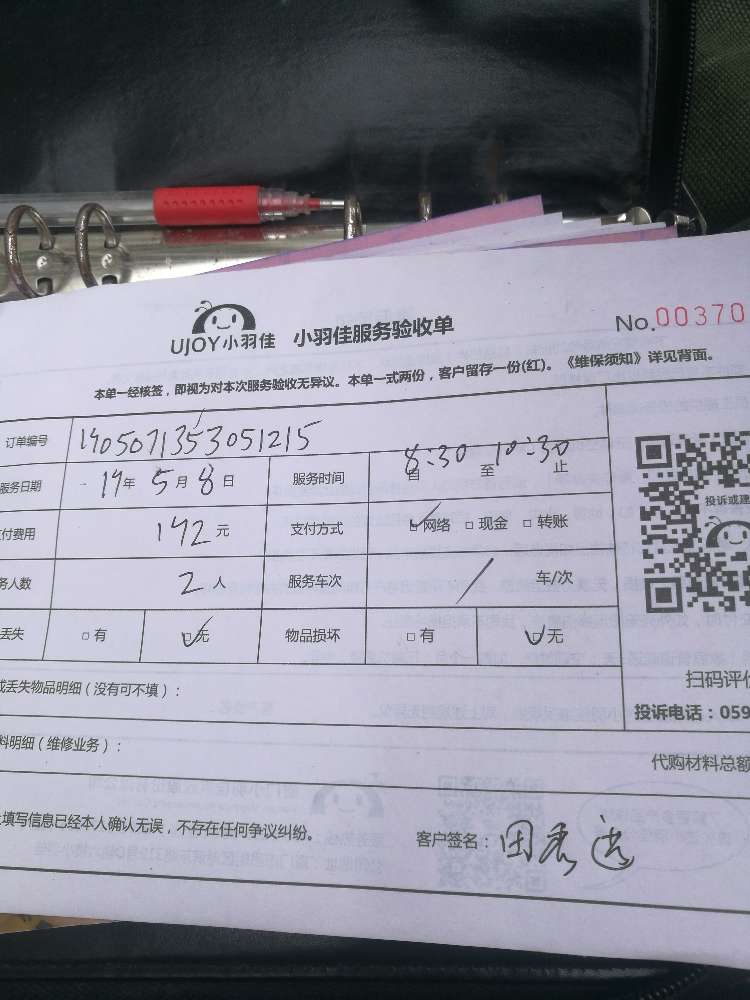 UJOY小羽佳 小羽佳服务验收单 No.00370
本单一经核签，即视为对本次服务验收无异议。本单一式两份，客户留存一份(红)。《维保须知》详见背面。
订单编号 1905071353051215
服务日期 19年 5月 8日 服务时间 8:30自 至 10:30止
付费用 192元 支付方式 网络 现金 转账 投诉或建
务人数 2人 服务车次 / 车/次
丢失 有 无 物品损坏 有 无
扫码评价
或丢失物品明细（没有可不填）：
投诉电话：059
料明细（维修业务）：
代购材料总额
填写信息已经本人确认无误，不存在任何争议纠纷。 客户签名：田秀